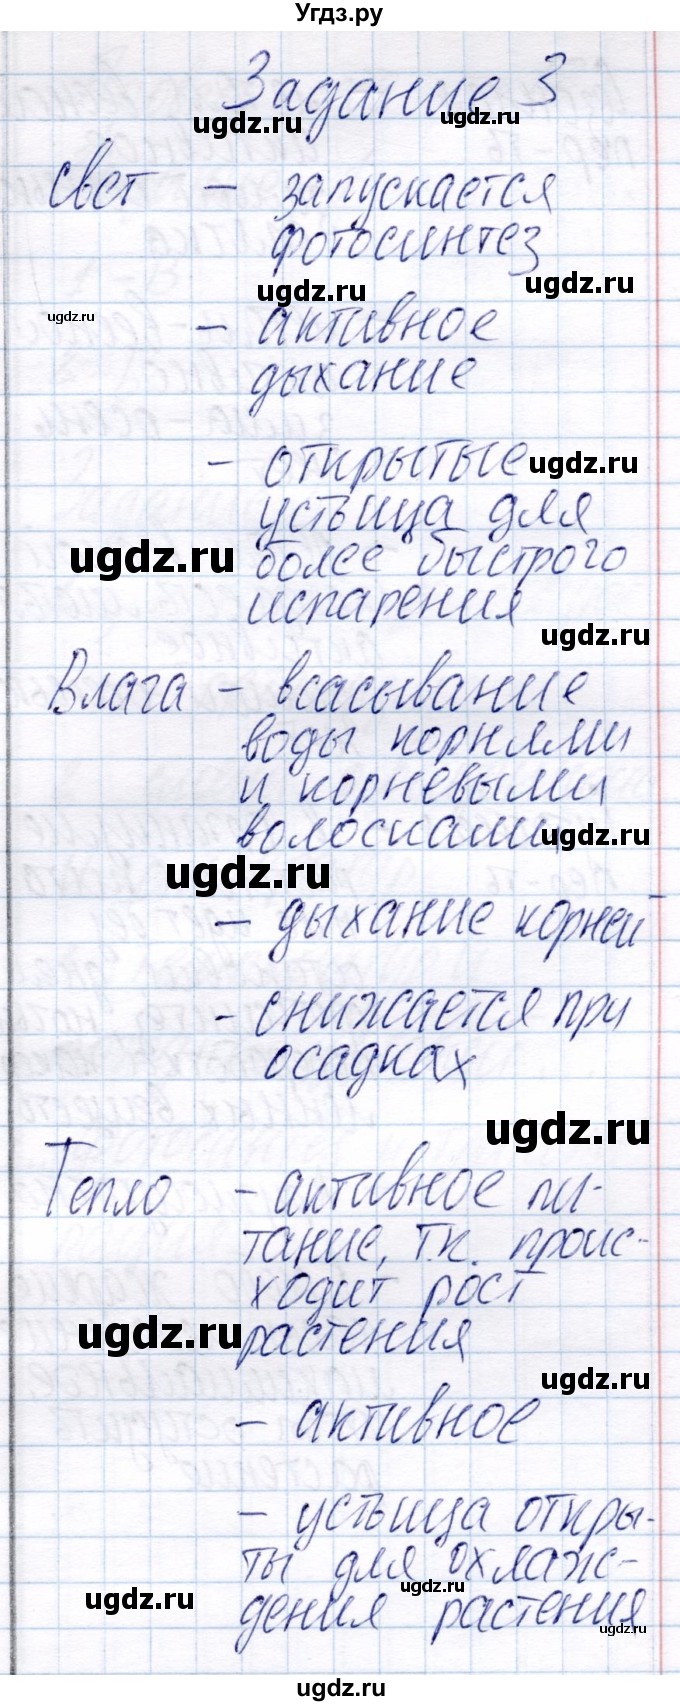 Угдз.ру
Задание 3
ugdz.ru ugdz.ru
свет – запускается
фотосинтез
ugdz.ru ugdz.ru
ugdz.ru
– активное
дыхание
– открытые ugdz.ru
устьица для
ugdz.ru более быстрого
испарения
ugdz.ru
Влага – всасывание
воды корнями
и корневыми
волосками ugdz.ru
ugdz.ru
– дыхание корней
– снижается при
осадках
ugdz.ru
Тепло – активное пи-
тание, т.к. проис-
ходит рост
ugdz.ru растения
ugdz.ru
– активное
– устьица откры-
ты для охлаж-
ugdz.ru ugdz.ru
дения растения
ugdz.ru
ugdz.ru